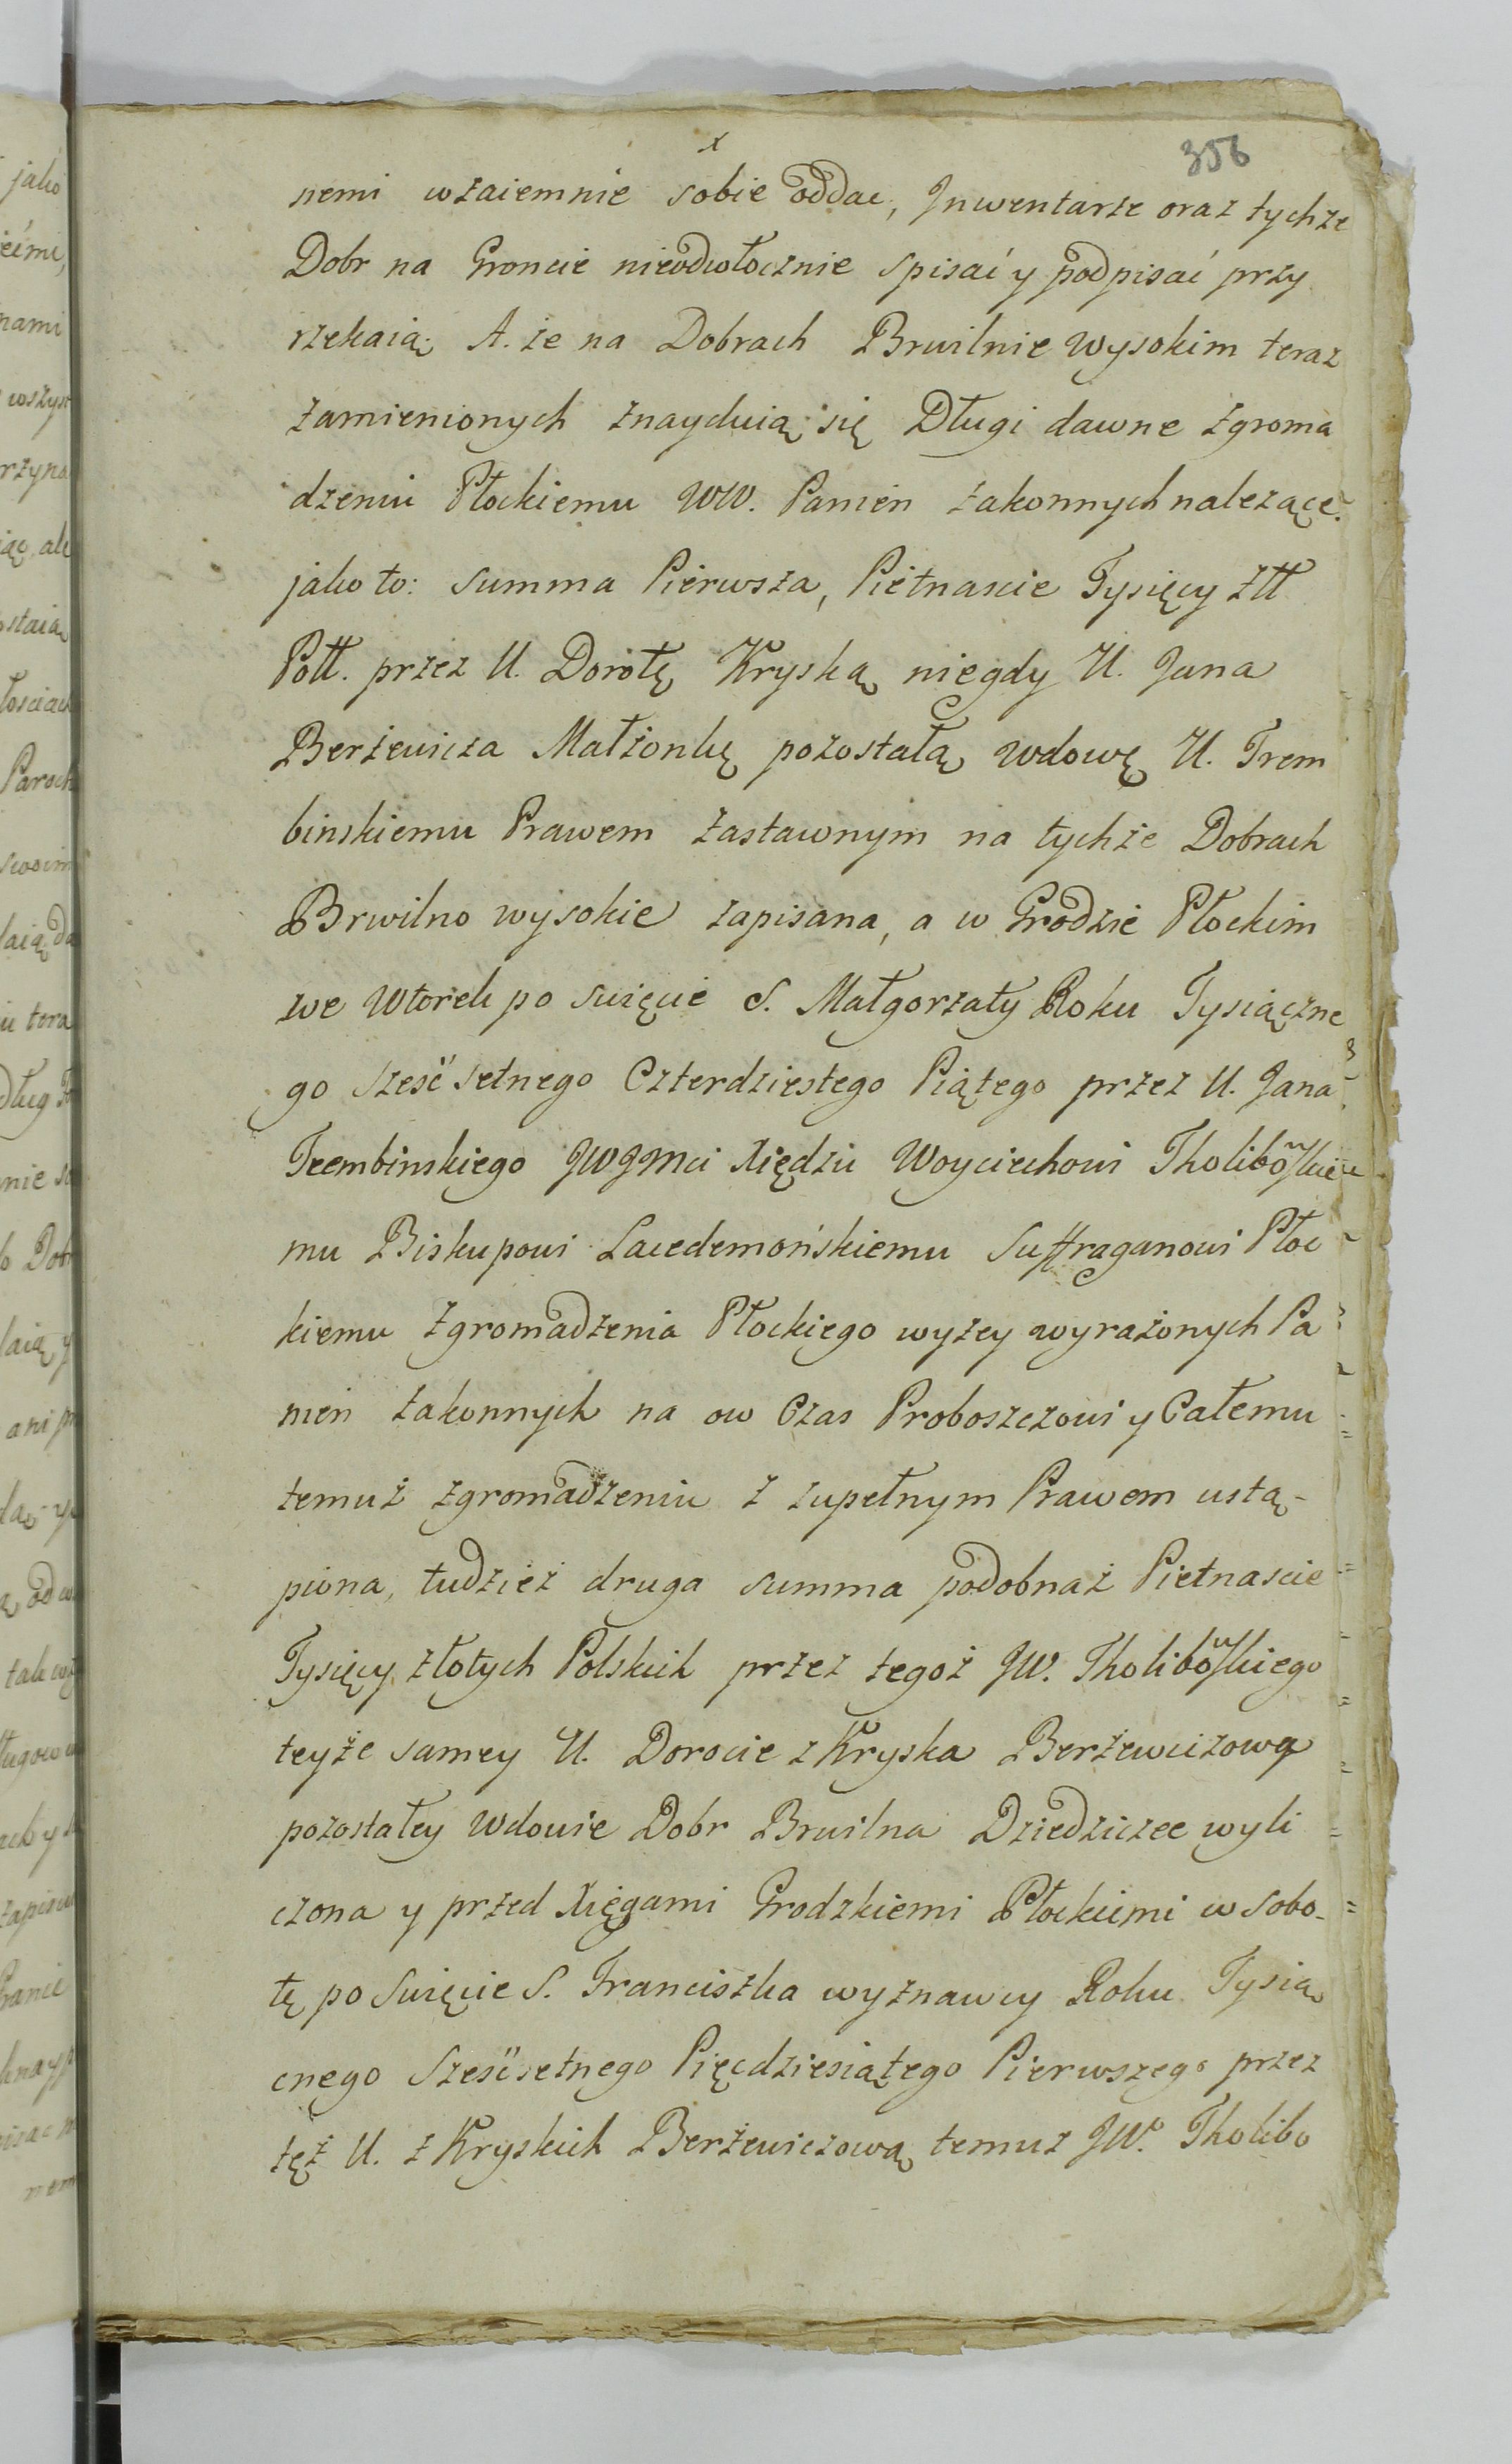 x
356
nemi wzaiemnie sobie oddac, Jnwentarze oraz tychze
Dobr na Groncie nieodwłocznie spisać y podpisać przy
rzekaią. A. że na Dobrach Brwilnie Wysokim teraz
zamienionych znayduią się Długi dawne zgroma
dzeniu Płockiemu WW. Panien zakonnych nalezące.
jako to: summa Pierwsza, Piętnascie Tysięcy złł
Poll. przez U. Dorotę Kryską niegdy U. Jana
Berżewicza Małżonkę pozostałą wdowę U. Trem
binskiemu Prawem zastawnym na tychże Dobrach
Brwilno wysokie zapisana, a w Grodzie Płockim
we Wtorek po święcie S. Małgorzaty Roku Tysiączne
go sześć setnego Czterdziestego Piątego przez U. Jana
Trembinskiego JWJMci Xiędzu Woyciechowi Tholibowskie
mu Biskupowi Lacedemońskiemu Suffraganowi Płoc
kiemu zgromadzenia Płockiego wyzey wyrażonych Pa
nien zakonnych na ow Czas Proboszczowi y Całemu
temuż zgromadzeniu z zupełnym Prawem ustą-
piona, tudzież druga summa podobnaż Piętnascie
Tysięcy złotych Polskich przez tegoż JW. Tholibowskiego
teyże samey U. Dorocie z Kryska Berżewiczowy
pozostałey Wdowie Dobr Brwilna Dziedziczce wyli
czona y przed Xięgami Grodzkiemi Płockiemi w Sobo-
tę po Swięcie S. Franciszka wyznawcy Roku Tysią
cnego Sześćsetnego Pięcdziesiątego Pierwszego przez
tęż U. z Kryskich Berżewiczową temuz JW. Tholibo